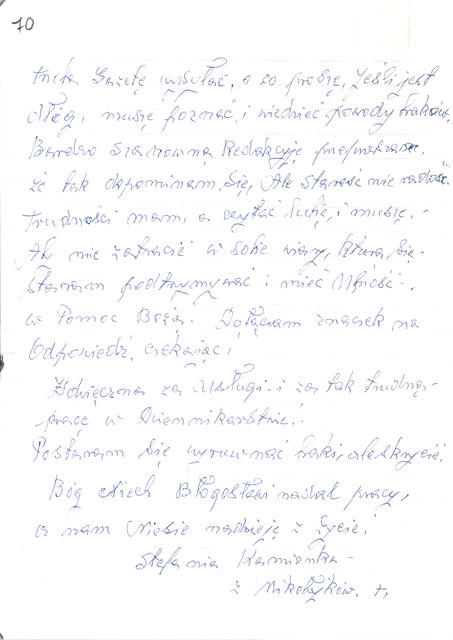 70
trzeba Gazetę wysyłać, o co proszę, Jeśli jest
dług, muszę poznać, i wiedzieć powody braków.
Bardzo Szanowną Redakcję przepraszam.
że tak dopominam się, Ale Starość nie radość.
trudności mam, a czytać lubię, i muszę.-
Aby nie zatracić w sobie wiary, którą się-
staram podtrzymywać i mieć Ufność-.
w Pomoc Bożą. Dołączam znaczek na
Odpowiedź, czekając.
Wdzięczna za Usługi i za tak trudną-
pracę w Dziennikarstwie.
Postaram się wyrównać braki,
Bóg Niech Błogosławi nadal pracy,
a nam Niesie nadzieję z Życie.
Stefania Kamionka-
z Mikołajków. +,